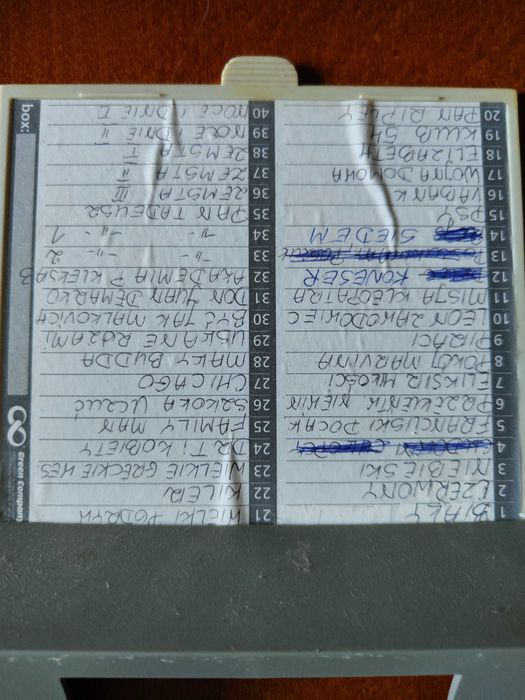 1 BIAŁY
2 CZERWONY
3 NIEBIESKI
4
5 FRANCUSKI POCAŁ
6 PRZEKLEŃTK NIEKIN
7 ELIKSIR MŁOŚCI
8 POKÓJ MARVINA
9 PIRACI
10 LEON ZAWODOWIEC
11 MISJA KLEOPATRA
12 KONESER
13
14 SIEDEM
15 PSY
16 VABANK
17 WOJNA DOMOWA
18 ELIZABETH
19 KLUB 54
20 PAN RIPLEY
21 WIELKI PODRYW
22 KILER
23 WIELKIE GRECKIE WES
24 DR T i KOBIETY
25 FAMILY MAN
26 SZKOŁA UCZUĆ
27 CHICAGO
28 MAŁY BUDDA
29 USŁANE RÓŻAMI
30 BYĆ JAK MALKOVICH
31 DON JUAN DEMARCO
32 AKADEMIA P KLEKSA
33 -"- -"- 2
34 -"- -"- 1
35 PAN TADEUSZ
36 ZEMSTA III
37 ZEMSTA II
38 ZEMSTA I
39 NOCE i DNIE II
40 NOCE i DNIE I
box:
Green Company